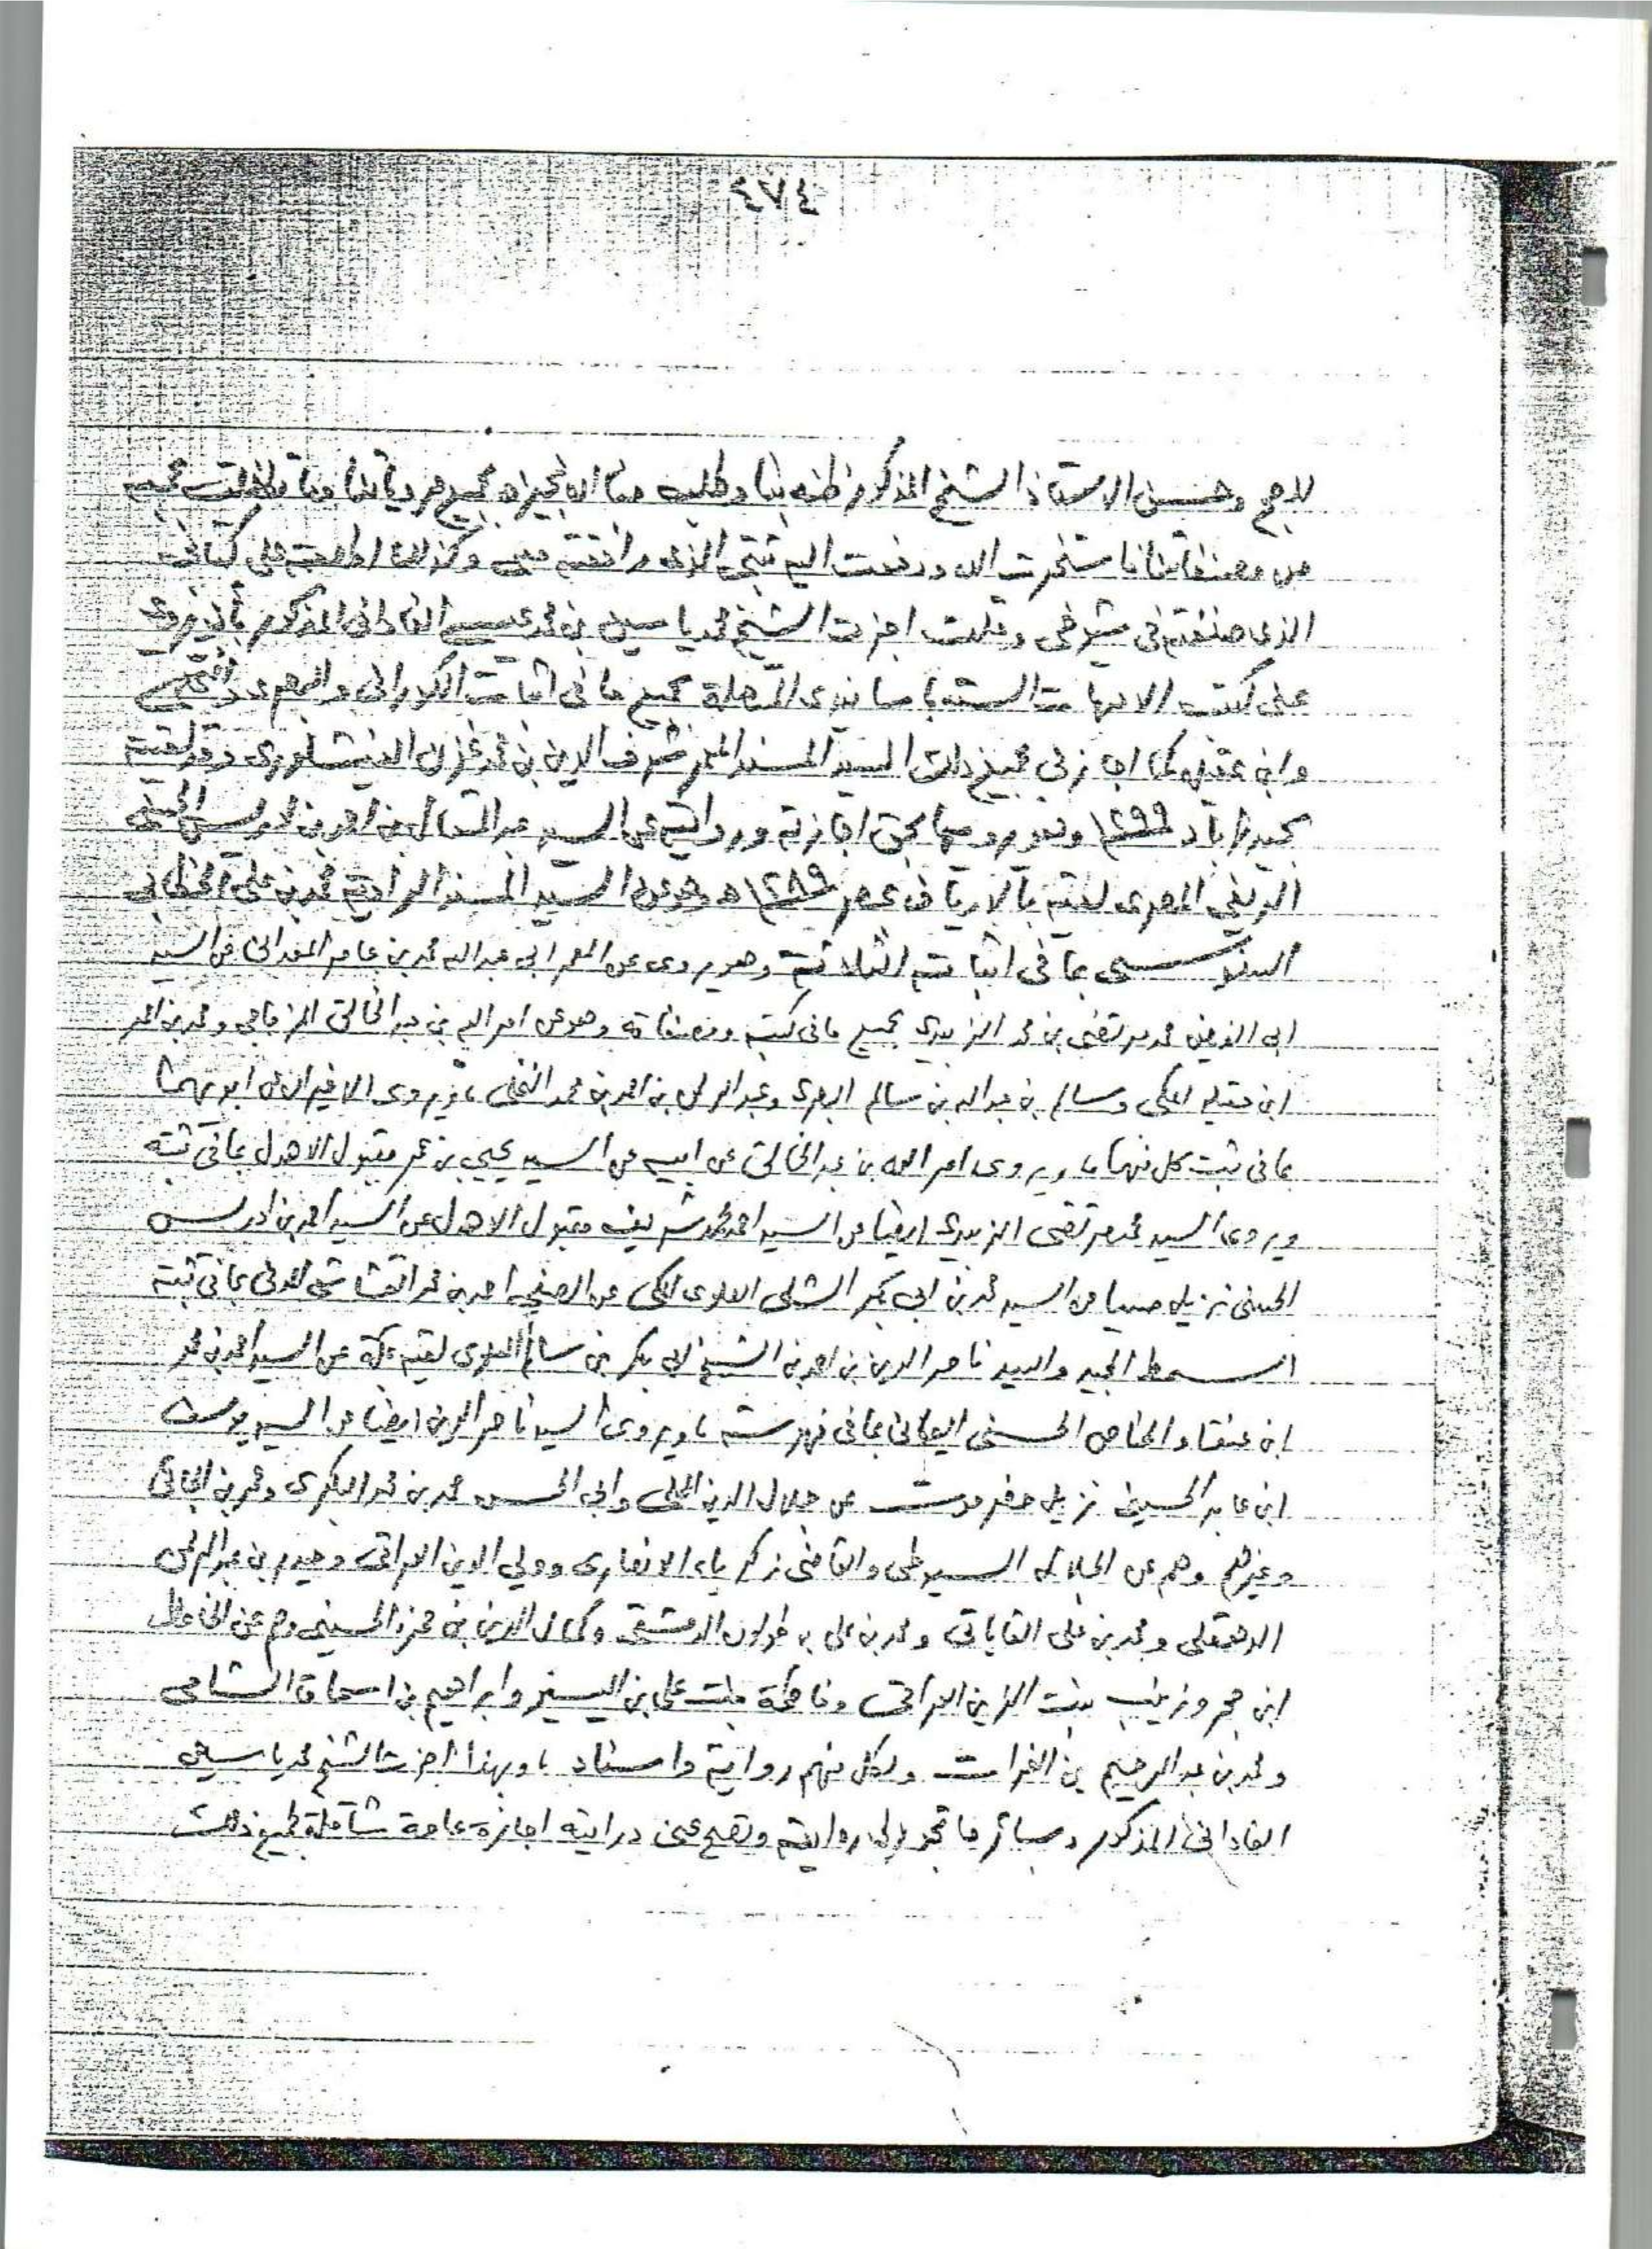 ٤٧٤
للحج وحسن الاستاذ الشيخ المذكور ظنه بنا وطلب منا ان نجيزه بجميع مروياتنا وما
من مصنفاتنا فاستخرت الله ودفعت اليه ثبتي الذي رافقته معي وكذلك اطلعته على كتابي
الذي صنفته في مشايخي وقلت اجزت الشيخ محمد ياسين بن محمد عيسى الفاداني المذكور بأن يروي
عني كتب الامهات الستة باسانيدي المتصلة بجميع ما في اثبات الكوراني والبصري والنخلي
وابن عقيل كما اجازني بجميع ذلك السيد المسند المعمر شرف الدين بن محمد وقد لقيته
بحيدراباد ١٢٩٩ وهو يرويها بحق اجازته وروايته عن السيد عبد المتعال بن احمد بن ادريس الحسني
المصري لقيته بالارياف بمصر ١٢٨٩ه وهو عن السيد المسند الراوية محمد بن علي الخطابي
السنوسي بما في اثباته الثلاثة وهو يروي عن المعمر ابي عبد الله محمد بن عامر المعداني عن السيد
ابي الفيض محمد مرتضى بن محمد الزبيدي بجميع ما في كتبه ومصنفاته وهو عن امر الله بن عبد الخالق المزجاجي ومحمد بن احمد
ابن عقيله المكي وسالم بن عبد الله بن سالم البصري وعبد الرحمن بن احمد بن محمد النخلي ، ويروي الاخيران عن ابويهما
بما في ثبت كل منهما ، ويروي امر الله بن عبد الخالق عن ابيه عن السيد يحيى بن عمر مقبول الاهدل بما في ثبته
ويروي السيد محمد مرتضى الزبيدي ايضا عن السيد احمد محمد شريف مقبول الاهدل عن السيد احمد بن ادريس
الحسني نزيل صبيا عن السيد محمد بن ابي بكر الشلي العلوي المكي عن الصفي احمد بن محمد القشاشي المدني بما في ثبته
السمط المجيد والسيد ناصر الدين بن احمد بن الشيخ ابي بكر بن سالم العلوي لقيته بمكة عن السيد احمد بن محمد
ابن الحسني اليماني بما في فهرسته ، ويروي السيد ناصر الدين ايضا عن السيد يوسف
ابن عابد الحسيني نزيل حضرموت عن جلال الدين المحلي وابي الحسن محمد بن محمد البكري ومحمد بن
وغيرهم وهم عن الجلال السيوطي والقاضي زكرياء الانصاري وولي الدين العراقي وحيدر بن عبد الرحمن
الدهقلي ومحمد بن علي القاياتي ومحمد بن علي بن طولون الدمشقي وكمال الدين بن حمزة الحسيني وهم عن الحافظ
ابن حجر وزينب بنت الزين العراقي وفاطمة بنت علي بن اليسير وابراهيم بن اسحاق الشامي
ومحمد بن عبد الرحيم بن الفرات ولكل منهم رواية واسناد ، وبهذا اجزت الشيخ محمد ياسين
الفاداني المذكور وبسائر ما تجوز لي روايته وتصح عني درايته اجازة عامة شاملة لجميع ذلك